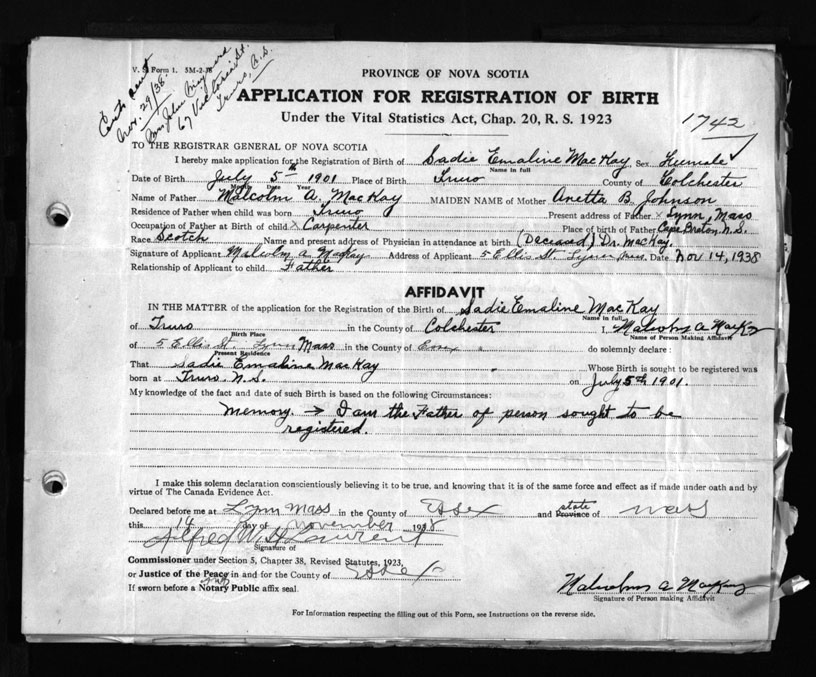 V. S. Form 1. 5M-2-
Cert sent
Nov. 29/38.
Mrs John
67 Victoria St.
Truro, N.S.
PROVINCE OF NOVA SCOTIA
APPLICATION FOR REGISTRATION OF BIRTH
Under the Vital Statistics Act, Chap. 20, R. S. 1923
1742
TO THE REGISTRAR GENERAL OF NOVA SCOTIA
I hereby make application for the Registration of Birth of Sadie Emaline MacKay Sex Female
Name in full
Date of Birth July 5th 1901 Place of Birth Truro County of Colchester
Month Date Year
Name of Father Malcolm A. MacKay MAIDEN NAME of Mother Aretta B. Johnson
Residence of Father when child was born Truro Present address of Father x Lynn, Mass
Occupation of Father at Birth of child x Carpenter Place of birth of Father Cape Breton, N.S.
Race Scotch Name and present address of Physician in attendance at birth (Deceased) Dr. MacKay.
Signature of Applicant Malcolm A MacKay Address of Applicant 5 Ellis St. Lynn Mass. Date Nov 14, 1938
Relationship of Applicant to child Father
AFFIDAVIT
IN THE MATTER of the application for the Registration of the Birth of Sadie Emaline MacKay
Name in full
of Truro in the County of Colchester I, Malcolm A MacKay
Birth Place Name of Person Making Affidavit
of 5 Ellis St. Lynn Mass in the County of Essex " do solemnly declare :
Present Residence
That Sadie Emaline MacKay Whose Birth is sought to be registered was
born at Truro N.S. on July 5th 1901.
My knowledge of the fact and date of such Birth is based on the following Circumstances:
Memory. → I am the Father of person sought to be
registered.
I make this solemn declaration conscientiously believing it to be true, and knowing that it is of the same force and effect as if made under oath and by
virtue of The Canada Evidence Act.
Declared before me at Lynn Mass in the County of Essex and Province of state Mass
this 14 day of November 1938
Alfred W. St Laurent
Signature of
Commissioner under Section 5, Chapter 38, Revised Statutes, 1923,
or Justice of the Peace in and for the County of Essex
If sworn before a Notary Public affix seal.
Malcolm A MacKay
Signature of Person making Affidavit
For Information respecting the filling out of this Form, see Instructions on the reverse side.